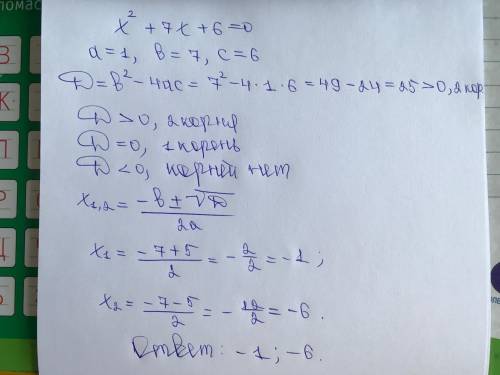 x² + 7x + 6 = 0
a = 1, b = 7, c = 6
D = b² − 4ac = 7² − 4 · 1 · 6 = 49 − 24 = 25 > 0, 2 кор.
D > 0, 2 корня
D = 0, 1 корень
D < 0, корней нет
x₁,₂ = (−b ± √D)/2a
x₁ = (−7 + 5)/2 = −2/2 = −1;
x₂ = (−7 − 5)/2 = −12/2 = −6.
Ответ: −1; −6.